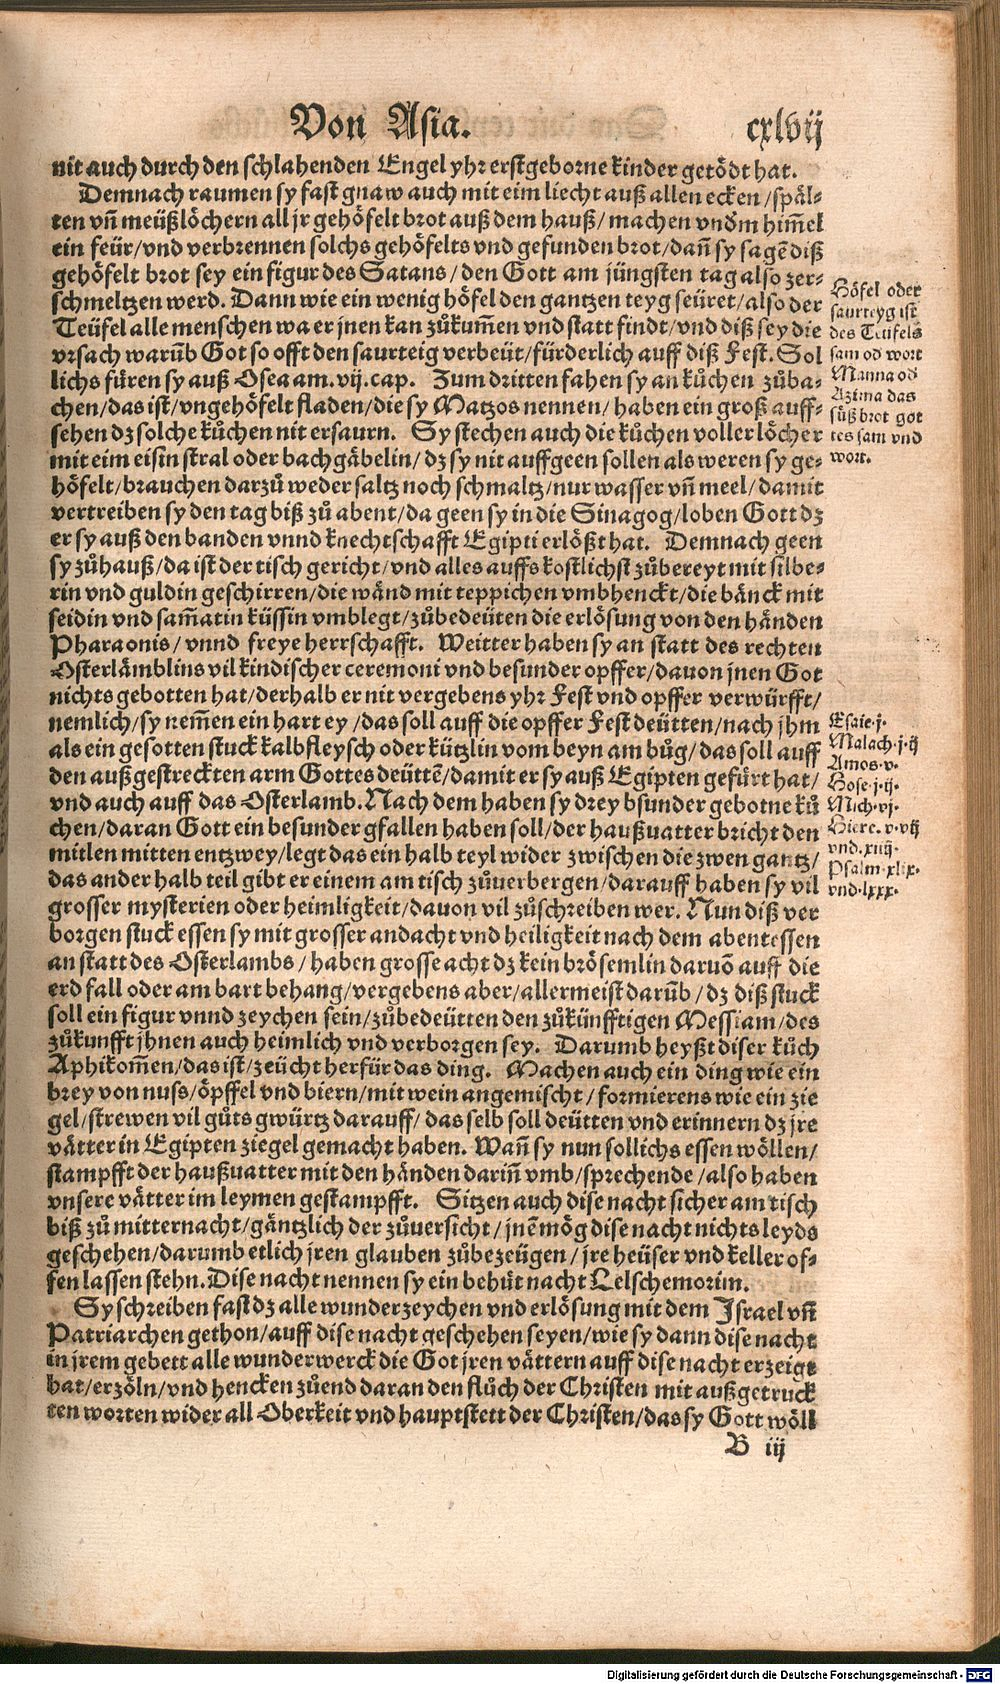 Von Asia. cxlvij
nit auch durch den schlahenden Engel yhr erstgeborne kinder getödt hat.
Demnach raumen sy fast gnaw auch mit eim liecht auß allen ecken/späl-
ten vnñ meüßlöchern all jr gehöfelt brot auß dem hauß/machen vnd'm him̃el
ein feür/vnd verbrennen solchs gehöfelts vnd gefunden brot/dañ sy sagẽ diß
gehöfelt brot sey ein figur des Satans/den Gott am jüngsten tag also zer-
schmeltzen werd. Dann wie ein wenig höfel den gantzen teyg seüret/also der
Teüfel alle menschen wa er jnen kan zůkum̃en vnd statt findt/vnd diß sey die
vrsach warũb Got so offt den saurteig verbeüt/fürderlich auff diß Fest. Sol
lichs füren sy auß Osea am.vij.cap. Zum dritten fahen sy an kůchen zůba-
chen/das ist/vngehöfelt fladen/die sy Matzos nennen/haben ein groß auff-
sehen dz solche kůchen nit ersaurn. Sy stechen auch die kůchen voller löcher
mit eim eisin stral oder bachgäbelin/dz sy nit auffgeen sollen als weren sy ge-
höfelt/brauchen darzů weder saltz noch schmaltz/nur wasser vnñ meel/damit
vertreiben sy den tag biß zů abent/da geen sy in die Sinagog/loben Gott dz
er sy auß den banden vnnd knechtschafft Egipti erlößt hat. Demnach geen
sy zůhauß/da ist der tisch gericht/vnd alles auffs kostlichst zůbereyt mit silbe-
rin vnd guldin geschirren/die wänd mit teppichen vmbhenckt/die bänck mit
seidin vnd sam̃atin küssin vmblegt/zůbedeüten die erlösung von den händen
Pharaonis/vnnd freye herrschafft. Weitter haben sy an statt des rechten
Osterlämblins vil kindischer ceremoni vnd besunder opffer/dauon jnen Got
nichts gebotten hat/derhalb er nit vergebens yhr Fest vnd opffer verwürfft/
nemlich/sy nem̃en ein hart ey/das soll auff die opffer Fest deütten/nach jhm
als ein gesotten stuck kalbfleysch oder kützlin vom beyn am bůg/das soll auff
den außgestreckten arm Gottes deüttẽ/damit er sy auß Egipten gefürt hat/
vnd auch auff das Osterlamb. Nach dem haben sy drey bsunder gebotne ků
chen/daran Gott ein besunder gfallen haben soll/der haußuatter bricht den
mitlen mitten entzwey/legt das ein halb teyl wider zwischen die zwen gantz/
das ander halb teil gibt er einem am tisch zůuerbergen/darauff haben sy vil
grosser mysterien oder heimligkeit/dauon vil zůschreiben wer. Nun diß ver
borgen stuck essen sy mit grosser andacht vnd heiligkeit nach dem abentessen
an statt des Osterlambs/haben grosse acht dz kein brösemlin daruõ auff die
erd fall oder am bart behang/vergebens aber/allermeist darũb/dz diß stuck
soll ein figur vnnd zeychen sein/zůbedeütten den zůkünfftigen Messiam/des
zůkunfft jhnen auch heimlich vnd verborgen sey. Darumb heyßt diser kůch
Aphikom̃en/das ist/zeücht herfür das ding. Machen auch ein ding wie ein
brey von nuss/öpffel vnd biern/mit wein angemischt/formierens wie ein zie
gel/strewen vil gůts gwürtz darauff/das selb soll deütten vnd erinnern dz jre
vätter in Egipten ziegel gemacht haben. Wañ sy nun sollichs essen wöllen/
stampfft der haußuatter mit den händen dariñ vmb/sprechende/also haben
vnsere vätter im leymen gestampfft. Sitzen auch dise nacht sicher am tisch
biß zů mitternacht/gäntzlich der zůuersicht/jnẽ mög dise nacht nichts leyds
geschehen/darumb etlich jren glauben zůbezeügen/jre heüser vnd keller of-
fen lassen stehn. Dise nacht nennen sy ein behůt nacht Lelschemorim.
Sy schreiben fast dz alle wunderzeychen vnd erlösung mit dem Israel vnñ
Patriarchen gethon/auff dise nacht geschehen seyen/wie sy dann dise nacht
in jrem gebett alle wunderwerck die Got jren vättern auff dise nacht erzeigt
hat/erzöln/vnd hencken zůend daran den flůch der Christen mit außgetruck
ten worten wider all Oberkeit vnd hauptstett der Christen/das sy Gott wöll
B iij
Höfel oder
saurteyg ist
des Teufels
sam od wort
Manna od
Azima das
süß brot got
tes sam vnd
wort.
Esaie.j.
Malach.j.ij
Amos.v.
Hose.j.ij.
Mich.vj.
Hiere.v.vij
vnd.xiiij.
Psalm.xlix.
vnd.lxxx.
Digitalisierung gefördert durch die Deutsche Forschungsgemeinschaft - DFG